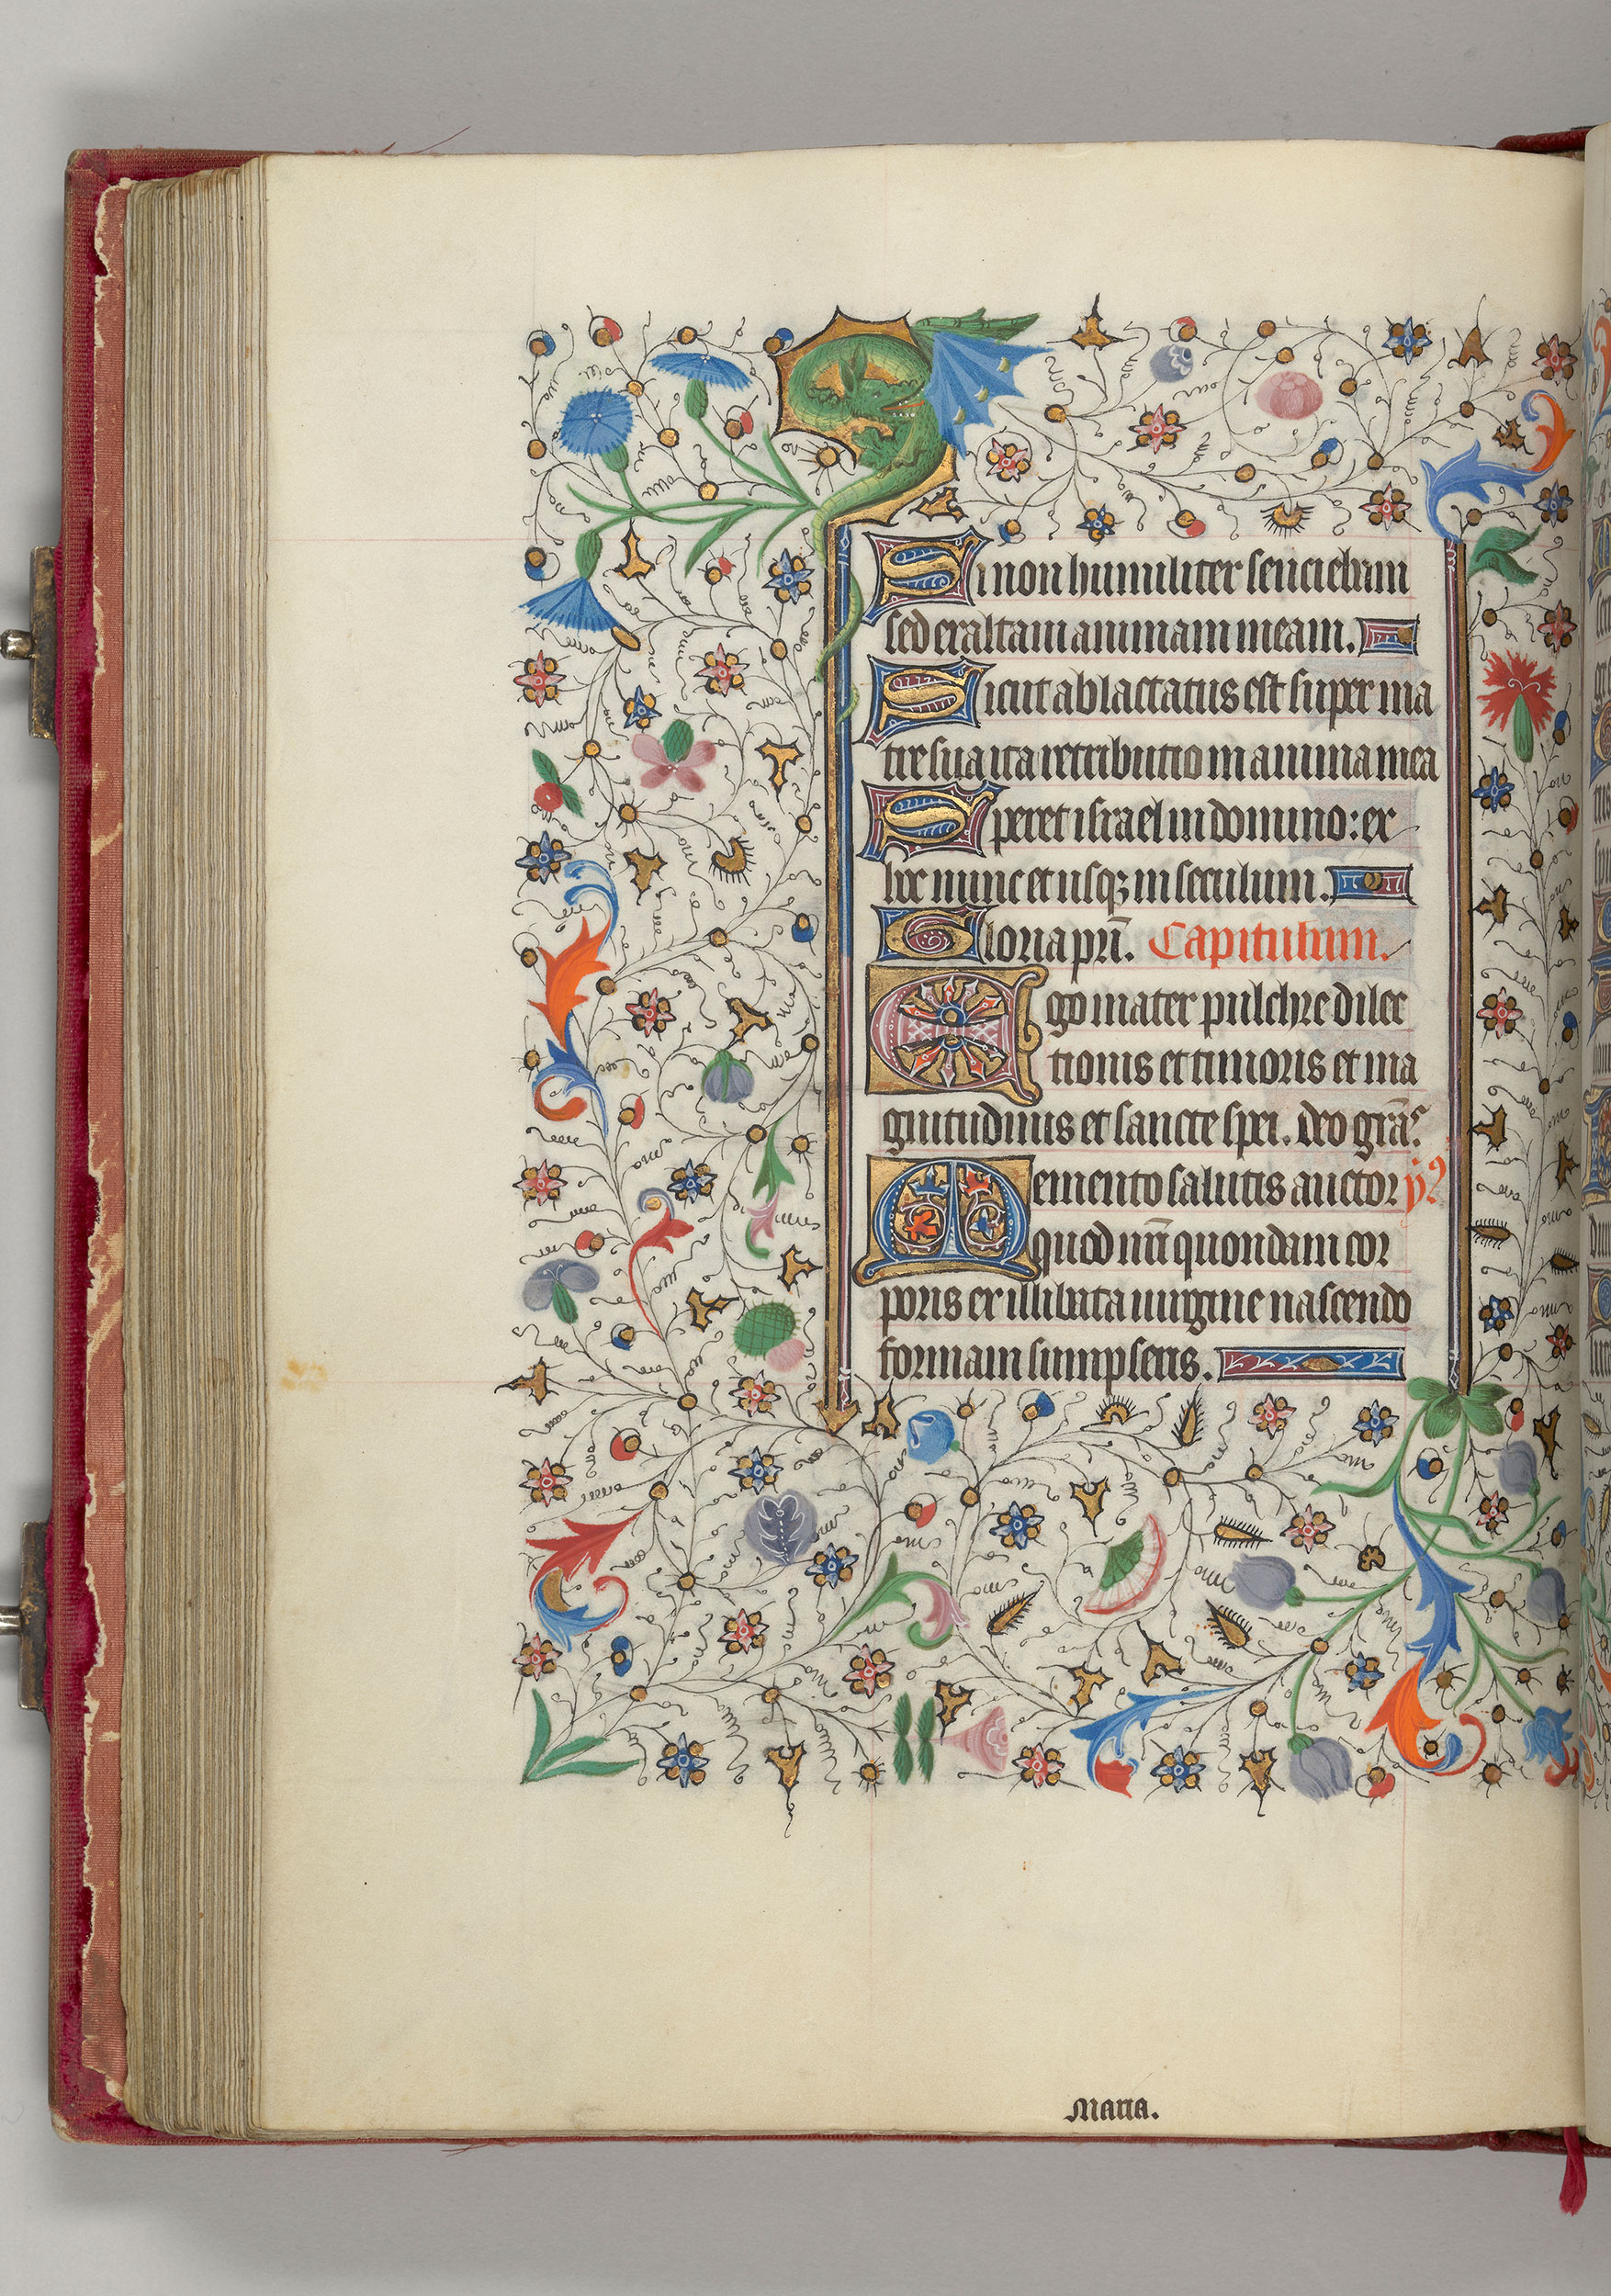 Si non humiliter senciebam
sed exaltaui animam meam.
Sicut ablactatus est super ma
tre sua ita retributio in anima mea
Speret israel in domino: ex
hoc nunc et usqꝫ in seculum.
Gloria pri̅. Capitulum.
Ego mater pulchre dilec
tionis et timoris et ma
gnitudinis et sancte spei. deo gra̅s.
Memento salutis auctor ẏꝰ
quod nr̅i quondam cor
poris ex illibata uirgine nascendo
formam sumpseris.
Maria.